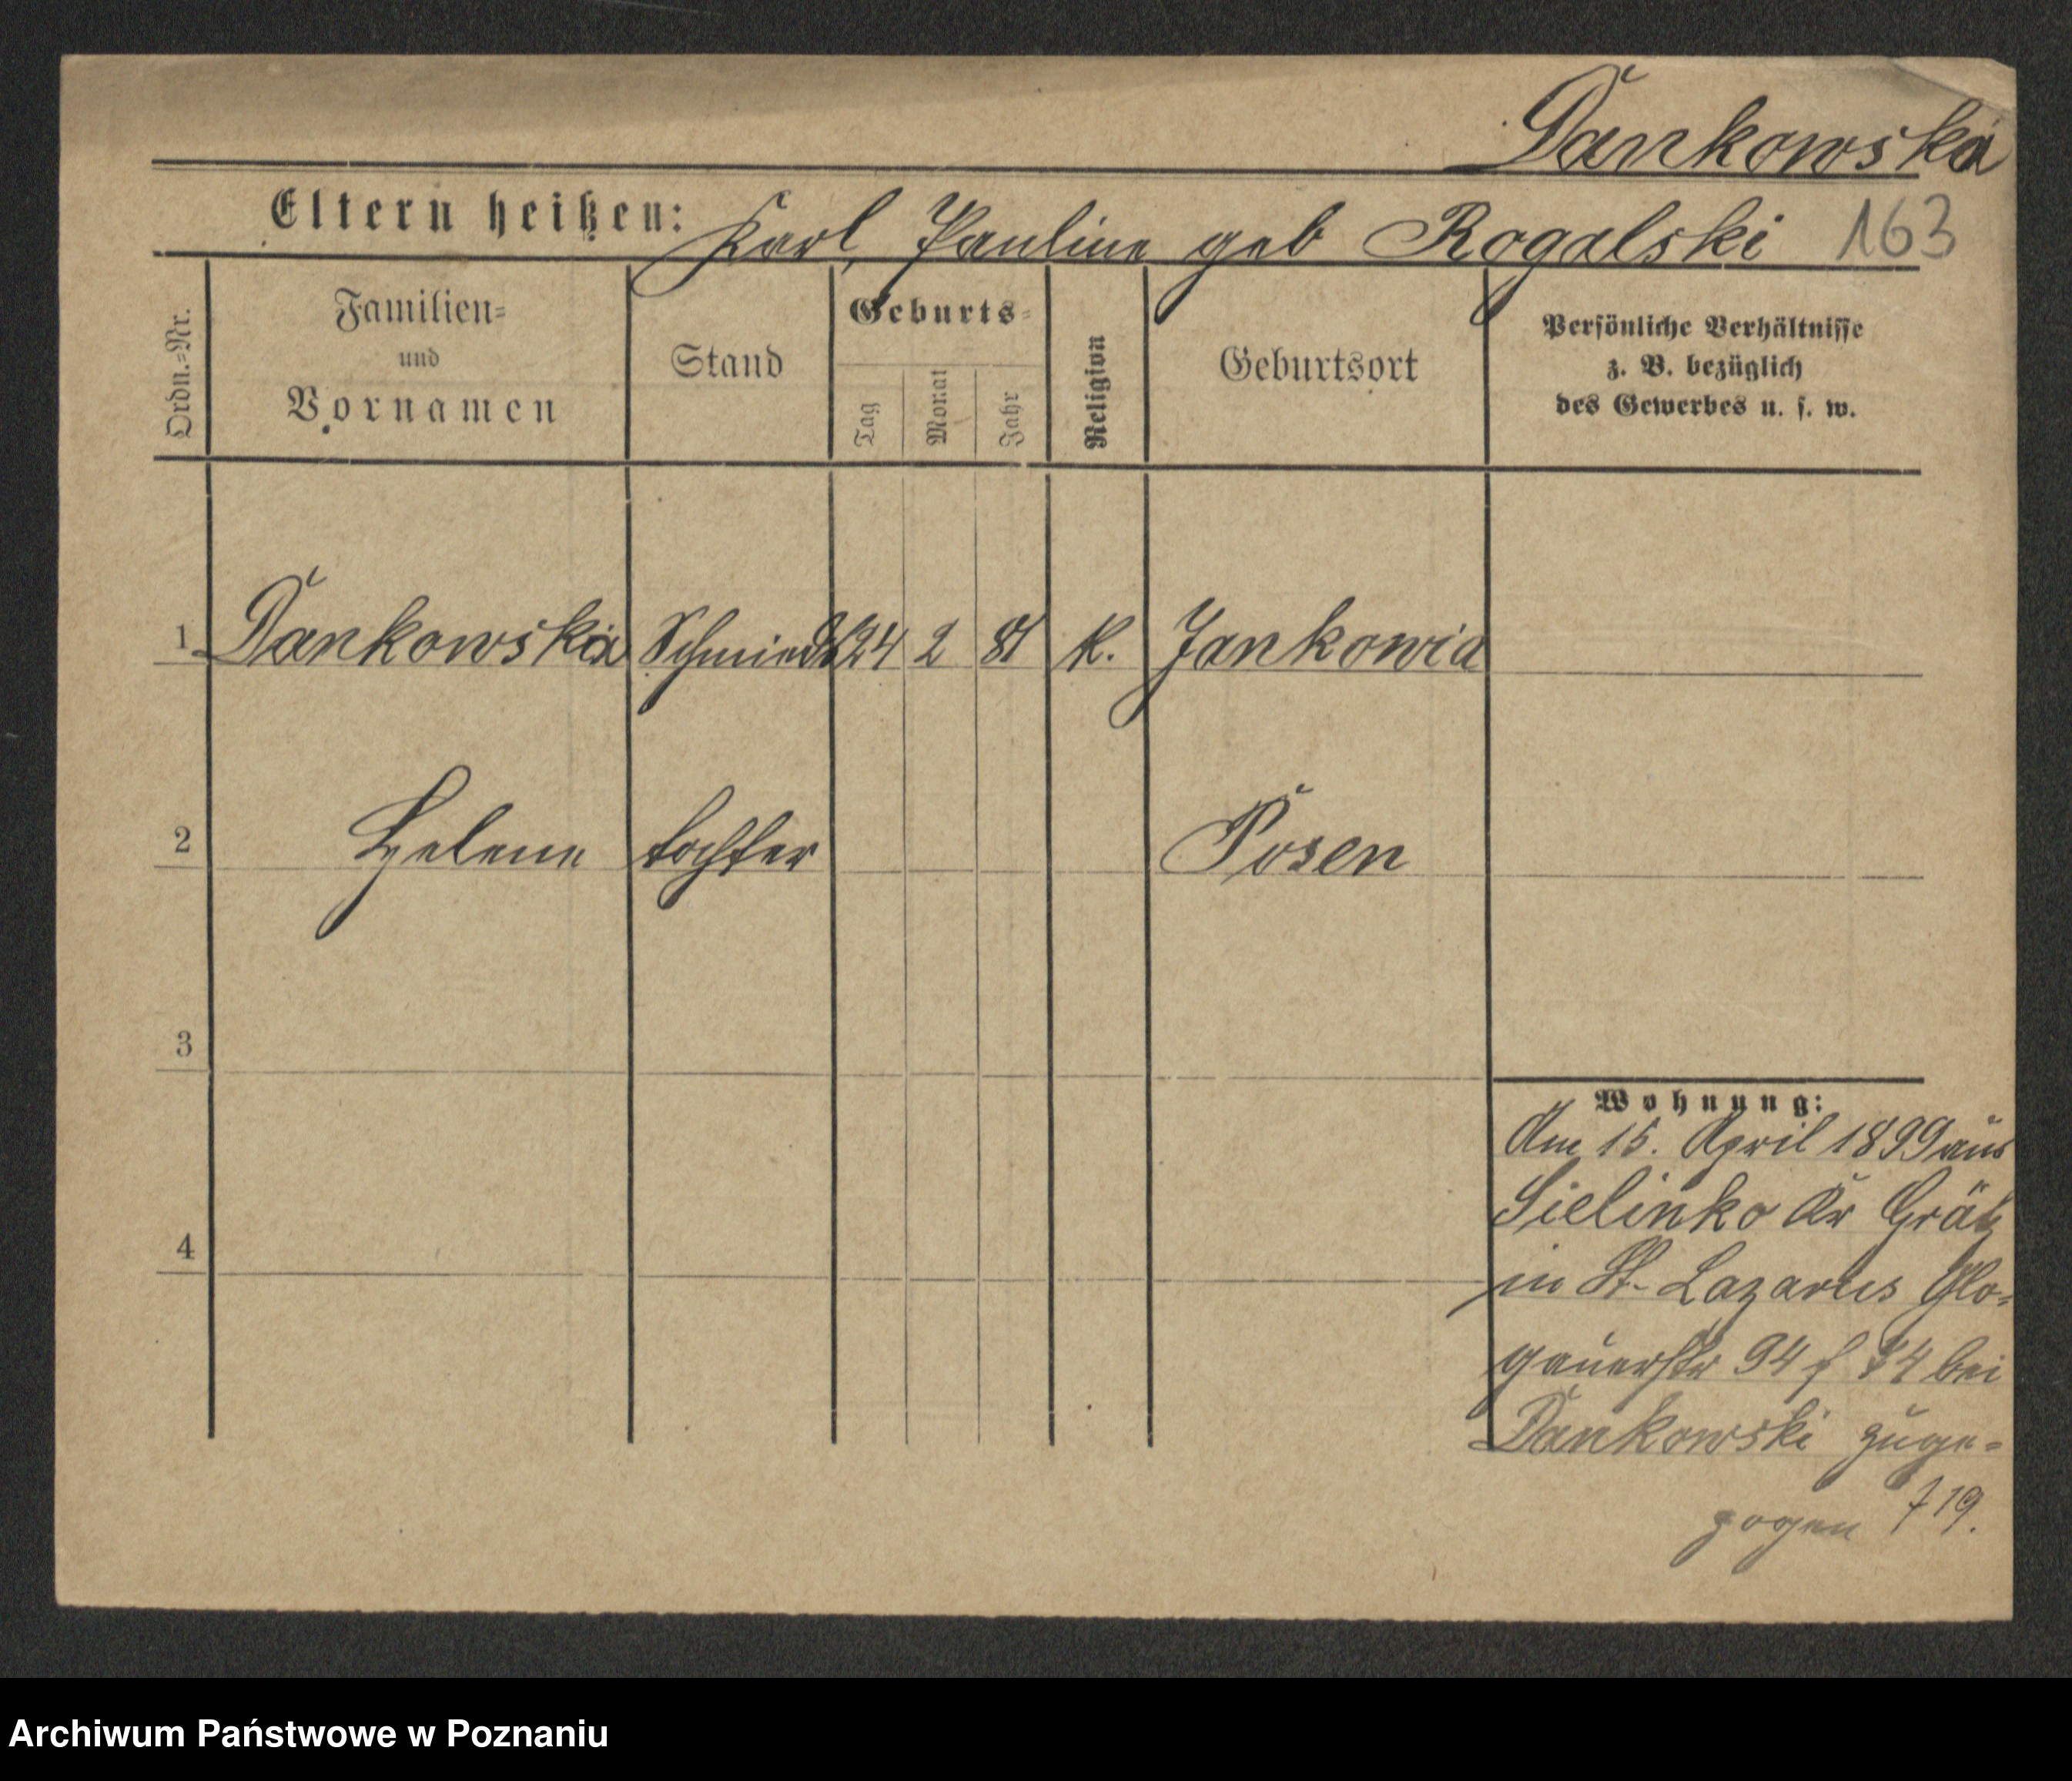 Dankowska
Eltern heißen: Karl, Pauline geb Rogalski 163
Ordn.=Nr.
Familien=
und
Vornamen
Stand
Geburts=
Tag
Monat
Jahr
Religion
Geburtsort
Persönliche Verhältnisse
z. B. bezüglich
des Gewerbes u. s. w.
1 Dankowska Schmiede 24 2 81 K. Jankowia
2 Helene tochter Posen
3
4
Wohnung:
Am 15. April 1899 aus
Sielinko Kr Grätz
in St. Lazarus Glo=
gauerstr 94 bei
Dankowski zuge=
zogen 719.
Archiwum Państwowe w Poznaniu